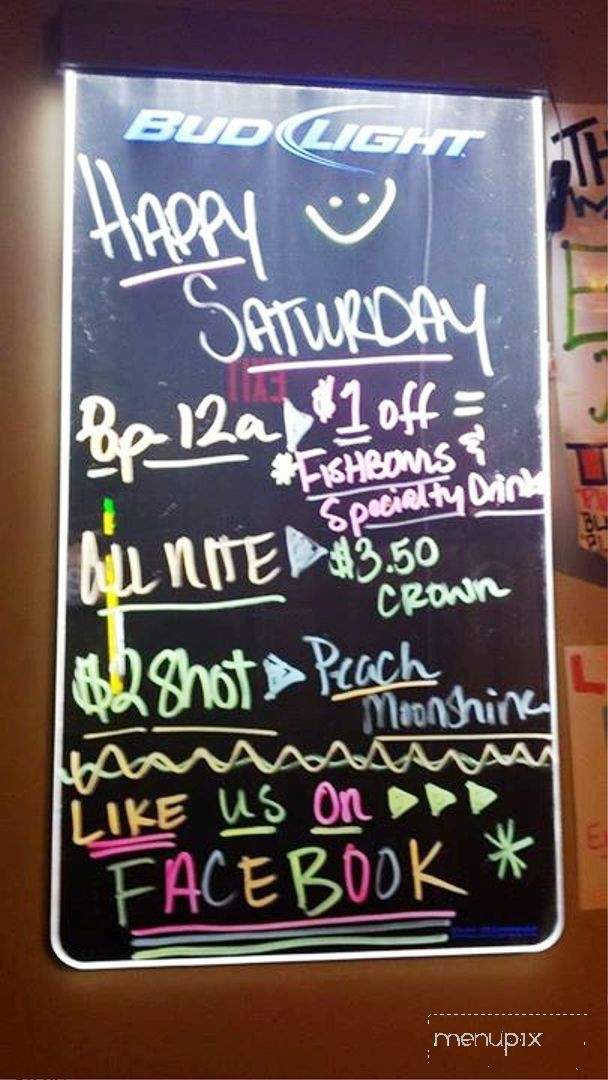 BUD LIGHT
HAPPY
SATURDAY
EXIT
8p-12a $1 off =
*FISHBOWLS &
Specialty Drink
ALL NITE $3.50
CROWN
$2 Shot Peach
Moonshine
LIKE US On
FACEBOOK *
menupix